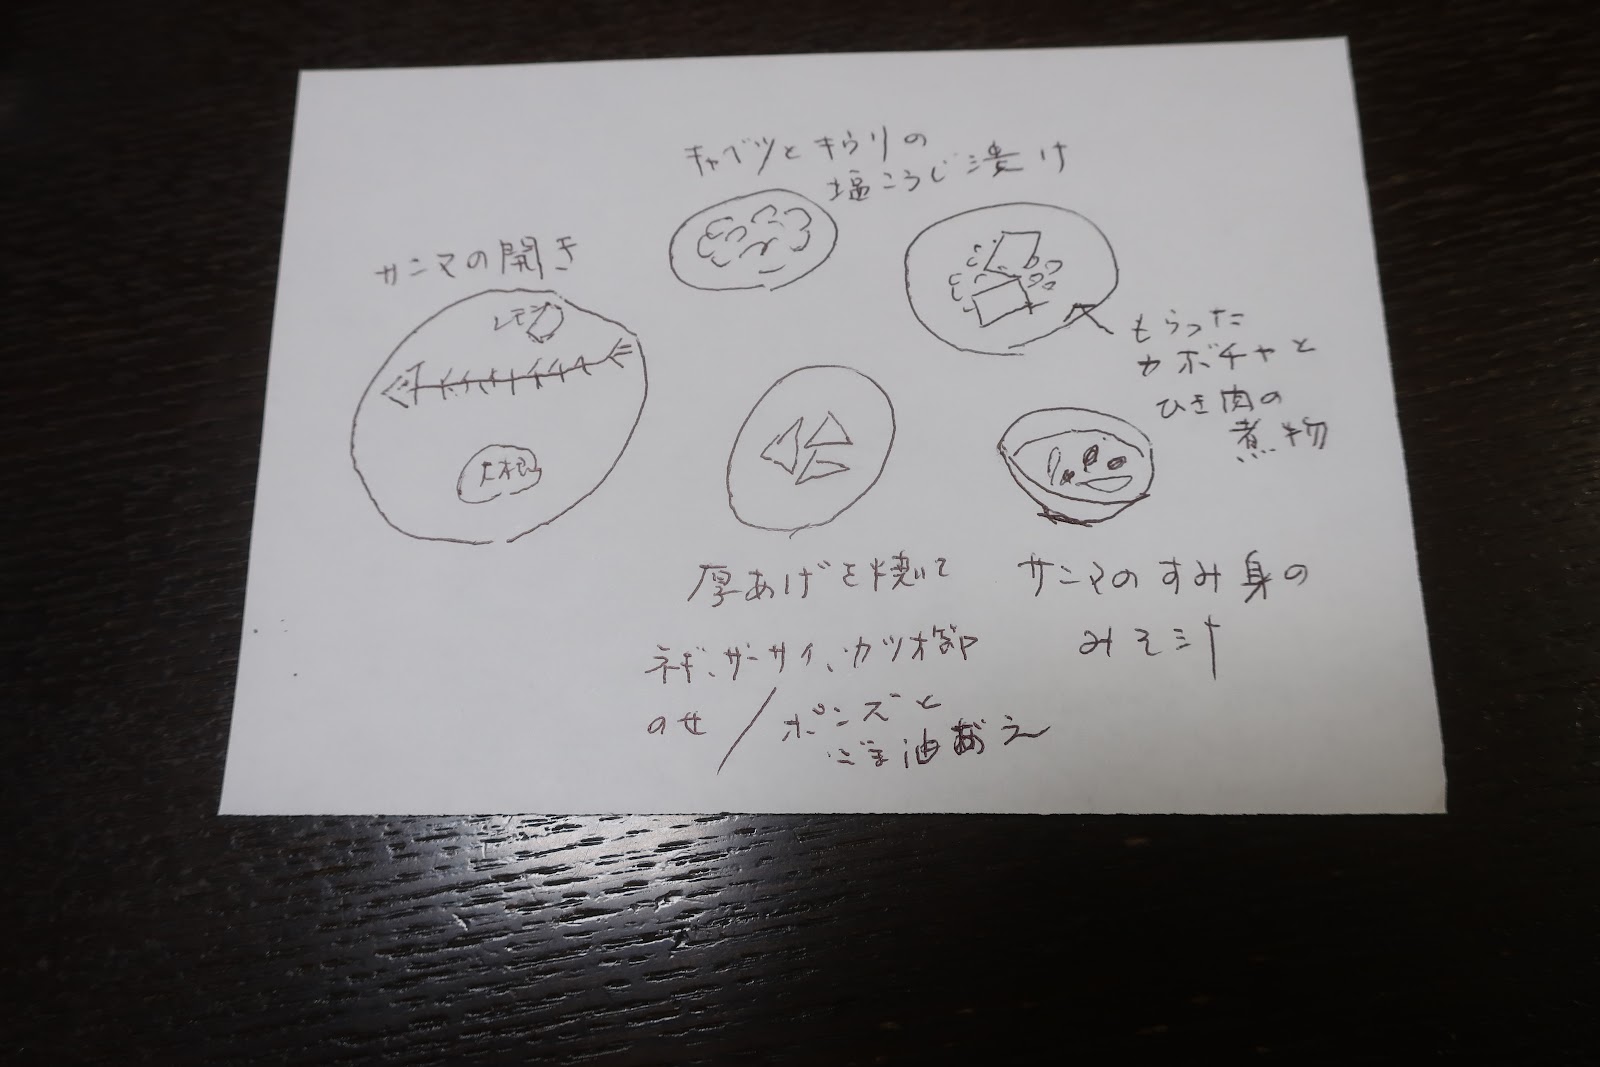 キャベツとキウリの
塩こうじ漬け
サンマの開き
レモン
大根
もらった
カボチャと
ひき肉の
煮物
厚あげを焼いて
ネギ、ザーサイ、カツオ節
のせ/ポンズと
ごま油あえ
サンマのすみ身の
みそ汁